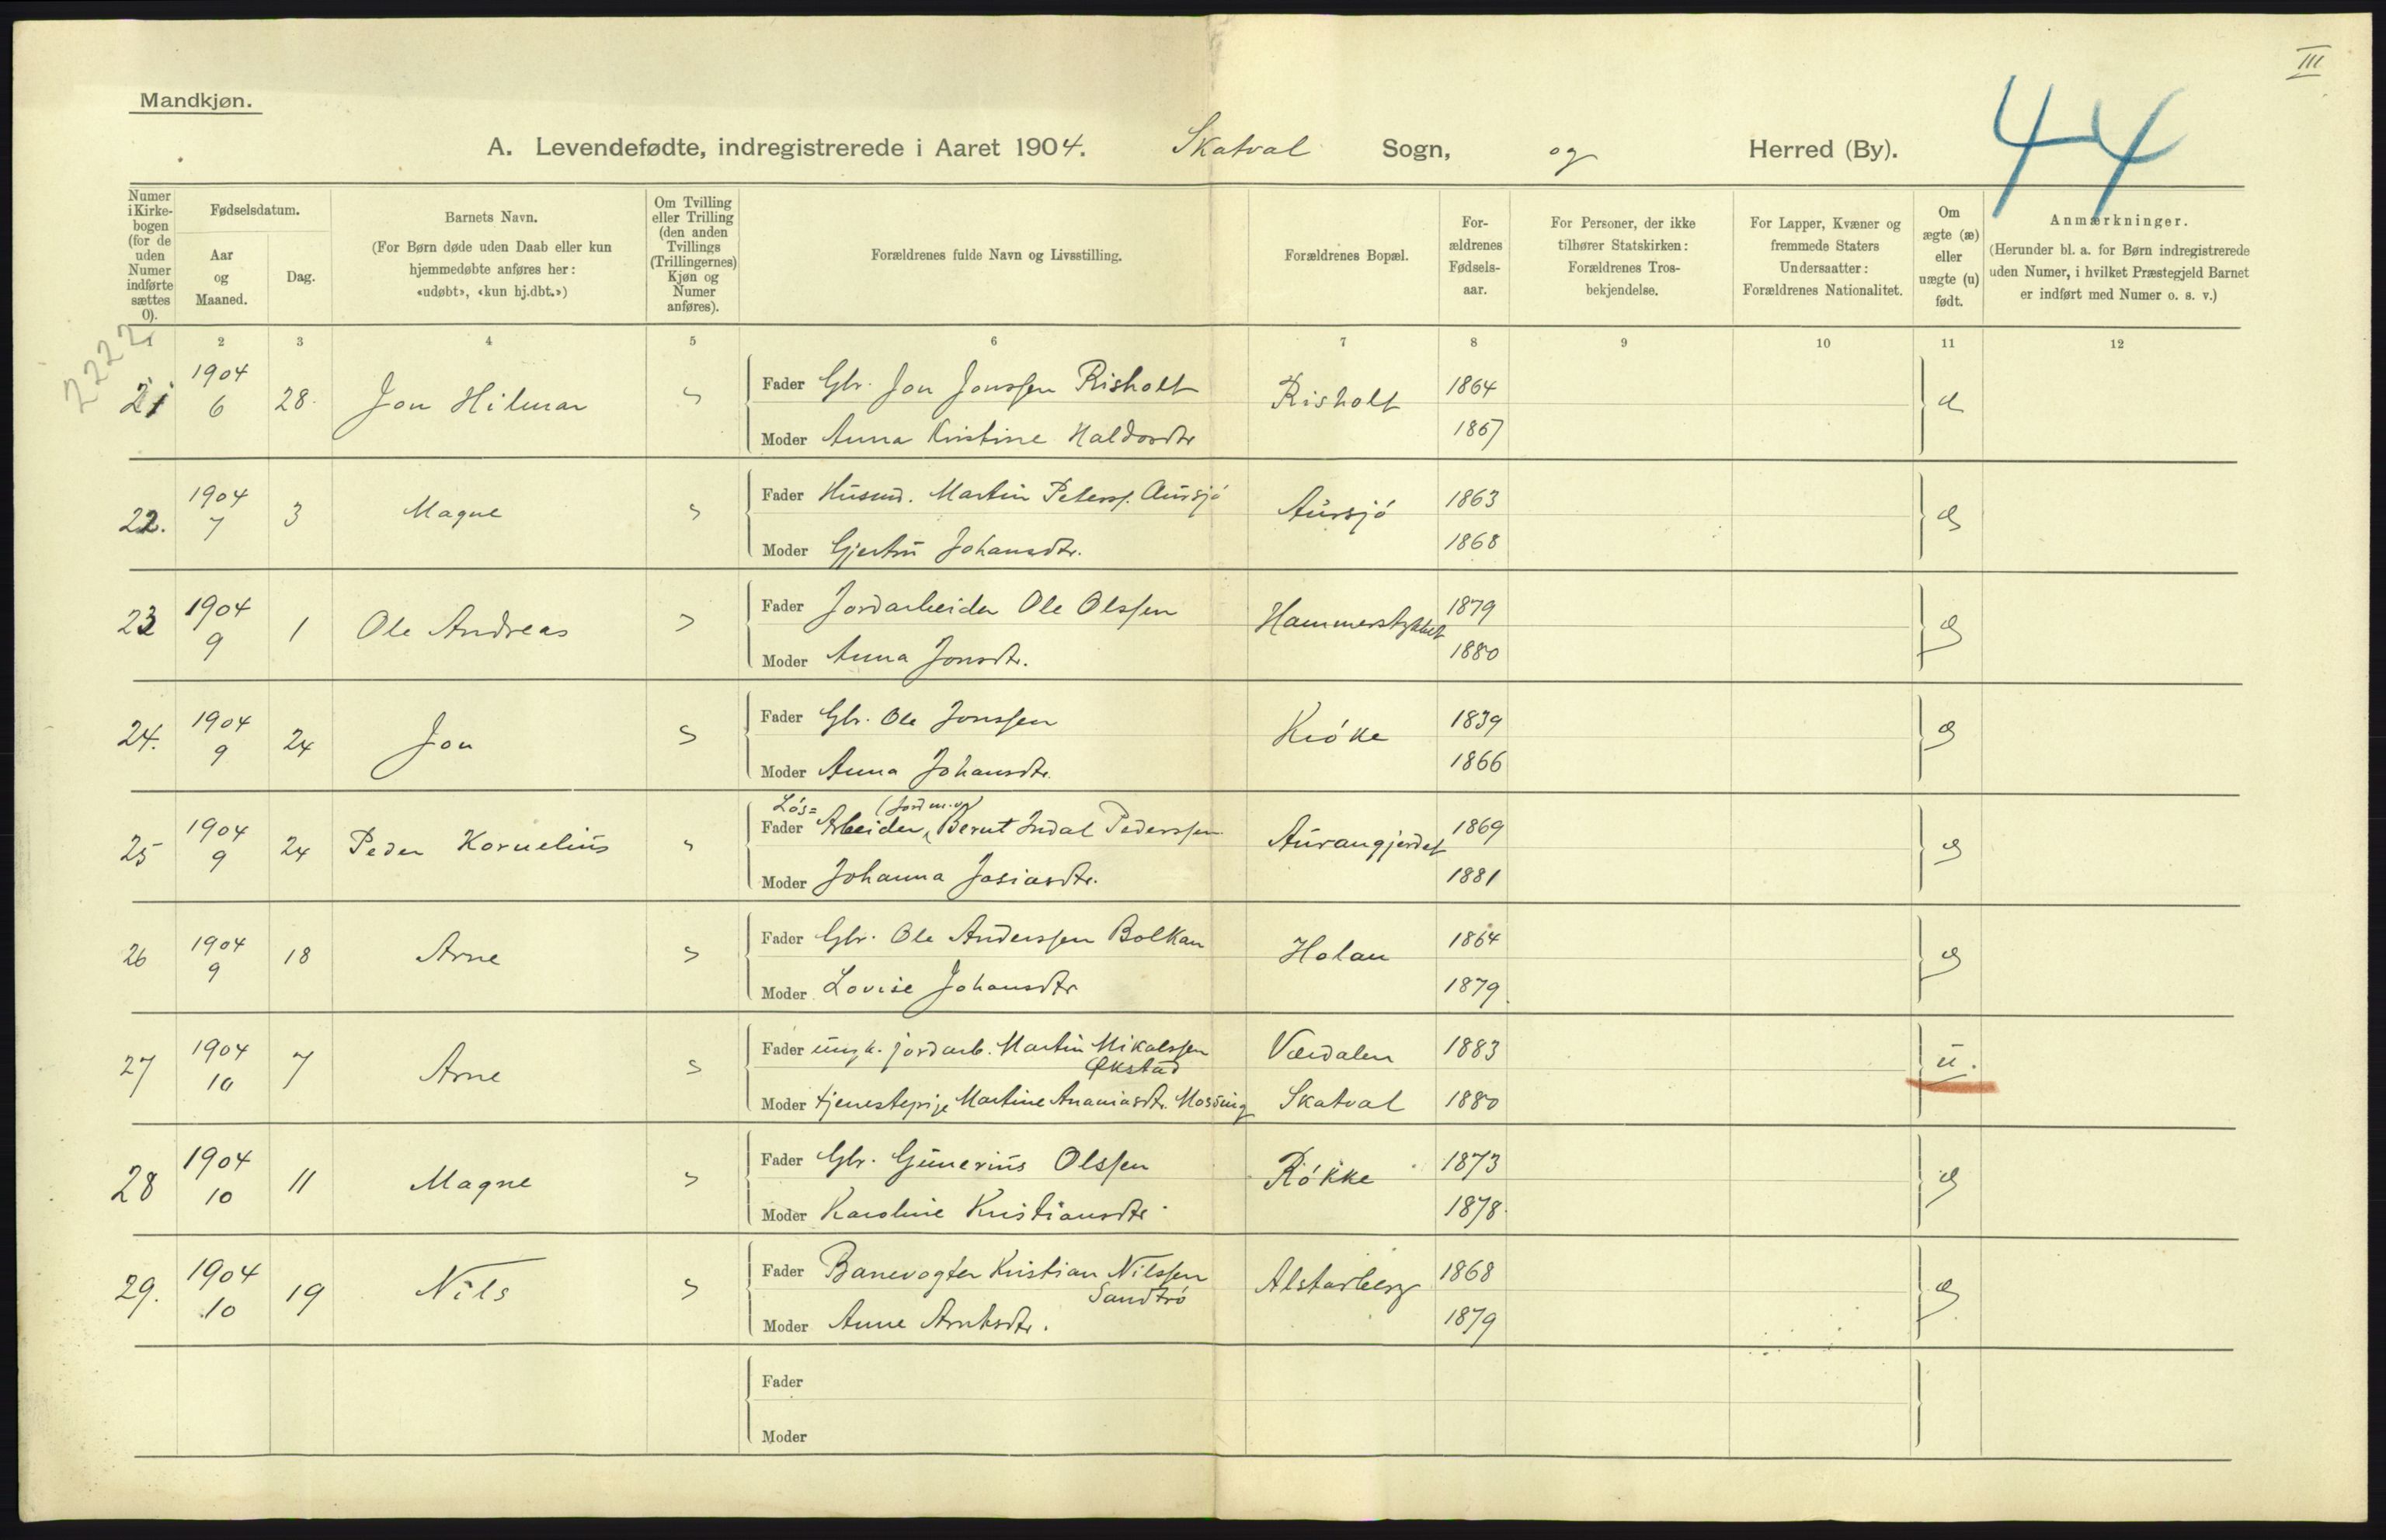 III
Mandkjøn.
44
A. Levendefødte, indregistrerede i Aaret 1904. Skatval Sogn, og Herred (By).
Numer i Kirke-bogen (for de uden Numer indførte sættes 0).
Fødselsdatum.
Aar og Maaned.
Dag.
Barnets Navn.
(For Børn døde uden Daab eller kun hjemmedøbte anføres her: «udøbt», «kun hj.dbt.»)
Om Tvilling eller Trilling (den anden Tvillings (Trillingernes) Kjøn og Numer anføres).
Forældrenes fulde Navn og Livsstilling.
Forældrenes Bopæl.
For-ældrenes Fødsels-aar.
For Personer, der ikke tilhører Statskirken: Forældrenes Tros-bekjendelse.
For Lapper, Kvæner og fremmede Staters Undersaatter: Forældrenes Nationalitet.
Om ægte (æ) eller uægte (u) født.
Anmærkninger.
(Herunder bl. a. for Børn indregistrerede uden Numer, i hvilket Præstegjeld Barnet er indført med Numer o. s. v.)
1 2 3 4 5 6 7 8 9 10 11 12
2222
21 1904 6 28. Jon Hilmar " Fader Gbr. Jon Jonssen Risholt Risholt 1864 æ
Moder Anna Kristine Haldorsdtr 1867
22. 1904 7 3 Magne " Fader Husmd. Martin Peterss. Aursjó Aursjó 1863 æ
Moder Gjertru Johansdtr. 1868
23 1904 9 1 Ole Andreas " Fader Jordarbeider Ole Olssen Hammerstykket 1879 æ
Moder Anna Jonsdtr. 1880
24. 1904 9 24 Jon " Fader Gbr. Ole Jonssen 1839 æ
Moder Anna Johansdtr. 1866
25 1904 9 24 Peder Kornelius " Fader Lós= Arbeider, Bernt Indal Pederssen Aurangjerdet 1869 æ
Moder Johanna Josiasdtr. 1881
26 1904 9 18 Arne " Fader Gbr. Ole Anderssen Bolkan Holan 1864 æ
Moder Lovise Johansdtr 1879.
27 1904 10 7 Arne " Fader ungk. jordarb. Martin Mikalssen Økstad Værdalen 1883 u.
Moder tjenestepige Martine Ananiasdtr. Mossing Skatval 1880
28 1904 10 11 Magne " Fader Gbr. Gunerius Olssen Rókke 1873 æ
Moder Karoline Kristiansdtr 1878.
29. 1904 10 19 Nils " Fader Banevogter Kristian Nilssen Sandtró Alstarberg 1868 æ
Moder Anne Arntsdtr. 1879
Fader
Moder